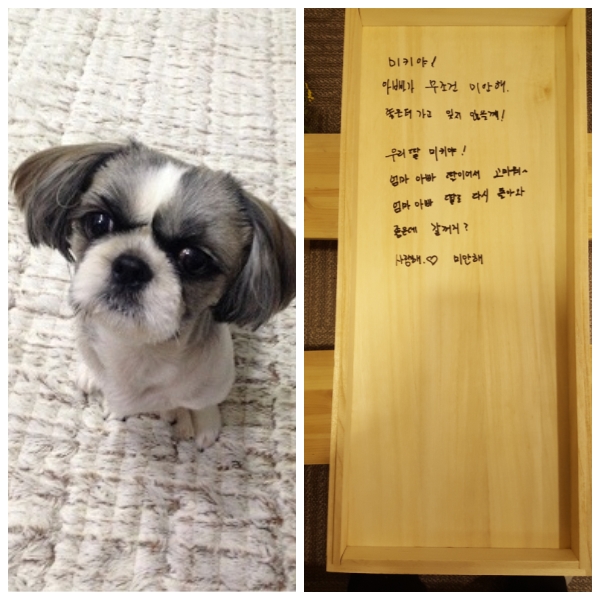 미키야!
아빠가 무조건 미안해.
좋은데 가고 잊지 않을께!
우리 딸 미키야!
엄마 아빠 딸이여서 고마워~
엄마 아빠 딸로 다시 돌아와
좋은데 갈꺼지?
사랑해.♡ 미안해